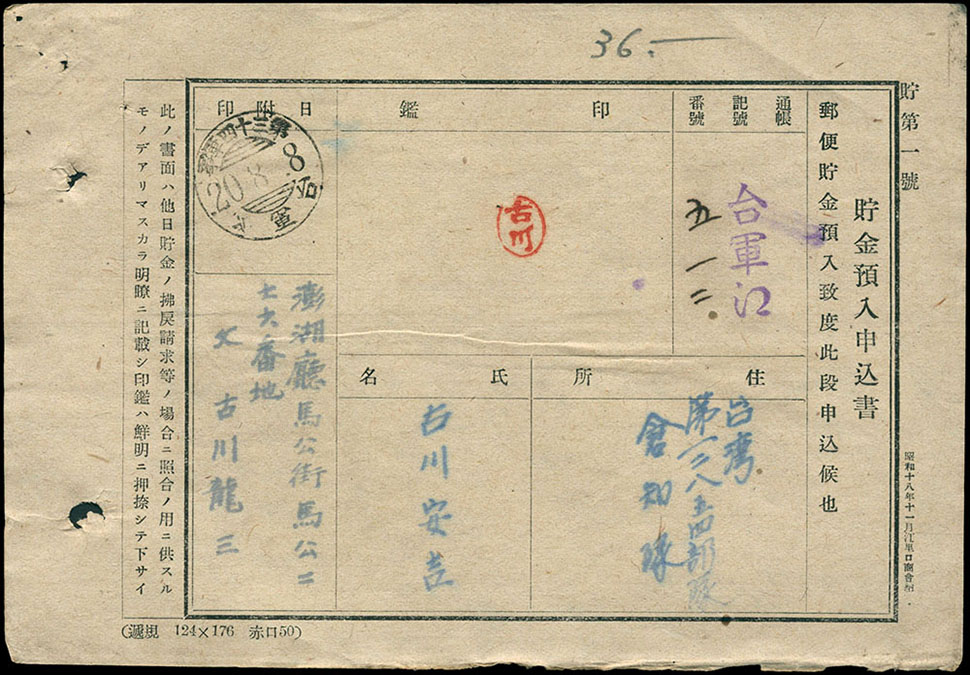 36.—
貯第一號
貯金預入申込書
昭和十八年十一月江里口商會納
郵便貯金預入致度此段申込候也
通帳
記號
番號
台軍江
五一二
印鑑
古川
日附印
第三十四軍事
20.8.8
台軍
住所
台湾
第一二八五四部隊
倉知隊
氏名
古川安吉
澎湖廳馬公街馬公二
七六番地
父 古川龍三
此ノ書面ハ他日貯金ノ拂戻請求等ノ場合ニ照合ノ用ニ供スル
モノデアリマスカラ明瞭ニ記載シ印鑑ハ鮮明ニ押捺シテ下サイ
(遞規 124×176 赤口50)